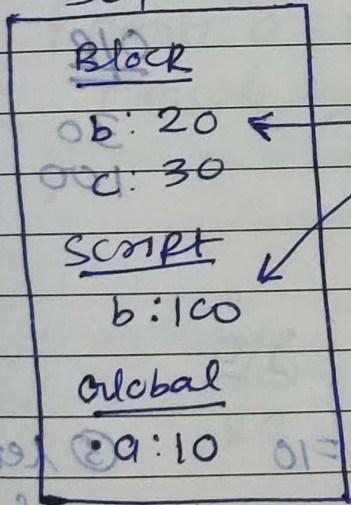 Block
b: 20
c: 30
Script
b: 100
Global
a: 10